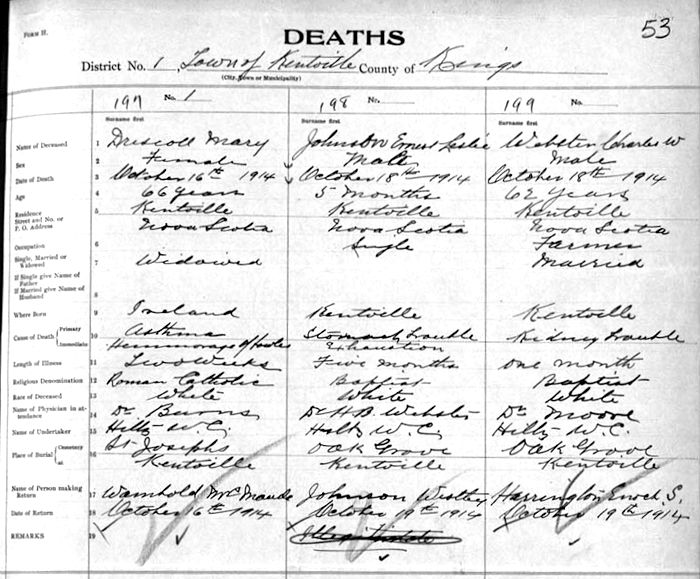 FORM H.
DEATHS
53
District No. 1, Town of Kentville County of Kings
(City, Town or Municipality)
197 No. 1 198 No. 199 No.
Surname first Surname first Surname first
Name of Deceased 1 Driscoll Mary Johnston Ernest Leslie Webster Charles W
Sex 2 Female Male Male
Date of Death 3 October 16th 1914 October 18th 1914 October 18th 1914
Age 4 66 years 5 months 62 years
Residence 5 Kentville Kentville Kentville
Street and No. or
P. O. Address Nova Scotia Nova Scotia Nova Scotia
Occupation 6 Single Farmer
Single, Married or
Widowed 7 Widowed Married
If Single give Name of
Father
If Married give Name of
Husband 8
Where Born 9 Ireland Kentville Kentville
Cause of Death Primary 10 Asthma Stomach trouble Kidney trouble
Immediate Hemmorage of bowles Exhaustion
Length of Illness 11 Two Weeks Five months one month
Religious Denomination 12 Roman Catholic Baptist Baptist
Race of Deceased 13 White White White
Name of Physician in at-
tendance 14 Dr Burns Dr H B Webster Dr Moore
Name of Undertaker 15 Hiltz W. C. Hiltz W. C. Hiltz W. C.
Place of Burial Cemetery at 16 St Josephs Oak Grove Oak Grove
Kentville Kentville Kentville
Name of Person making
Return 17 Wambold Mrs Maude Johnson Harrington Enoch S.
Date of Return 18 October 16th 1914 October 19th 1914 October 19th 1914
REMARKS 19 Illegitimate